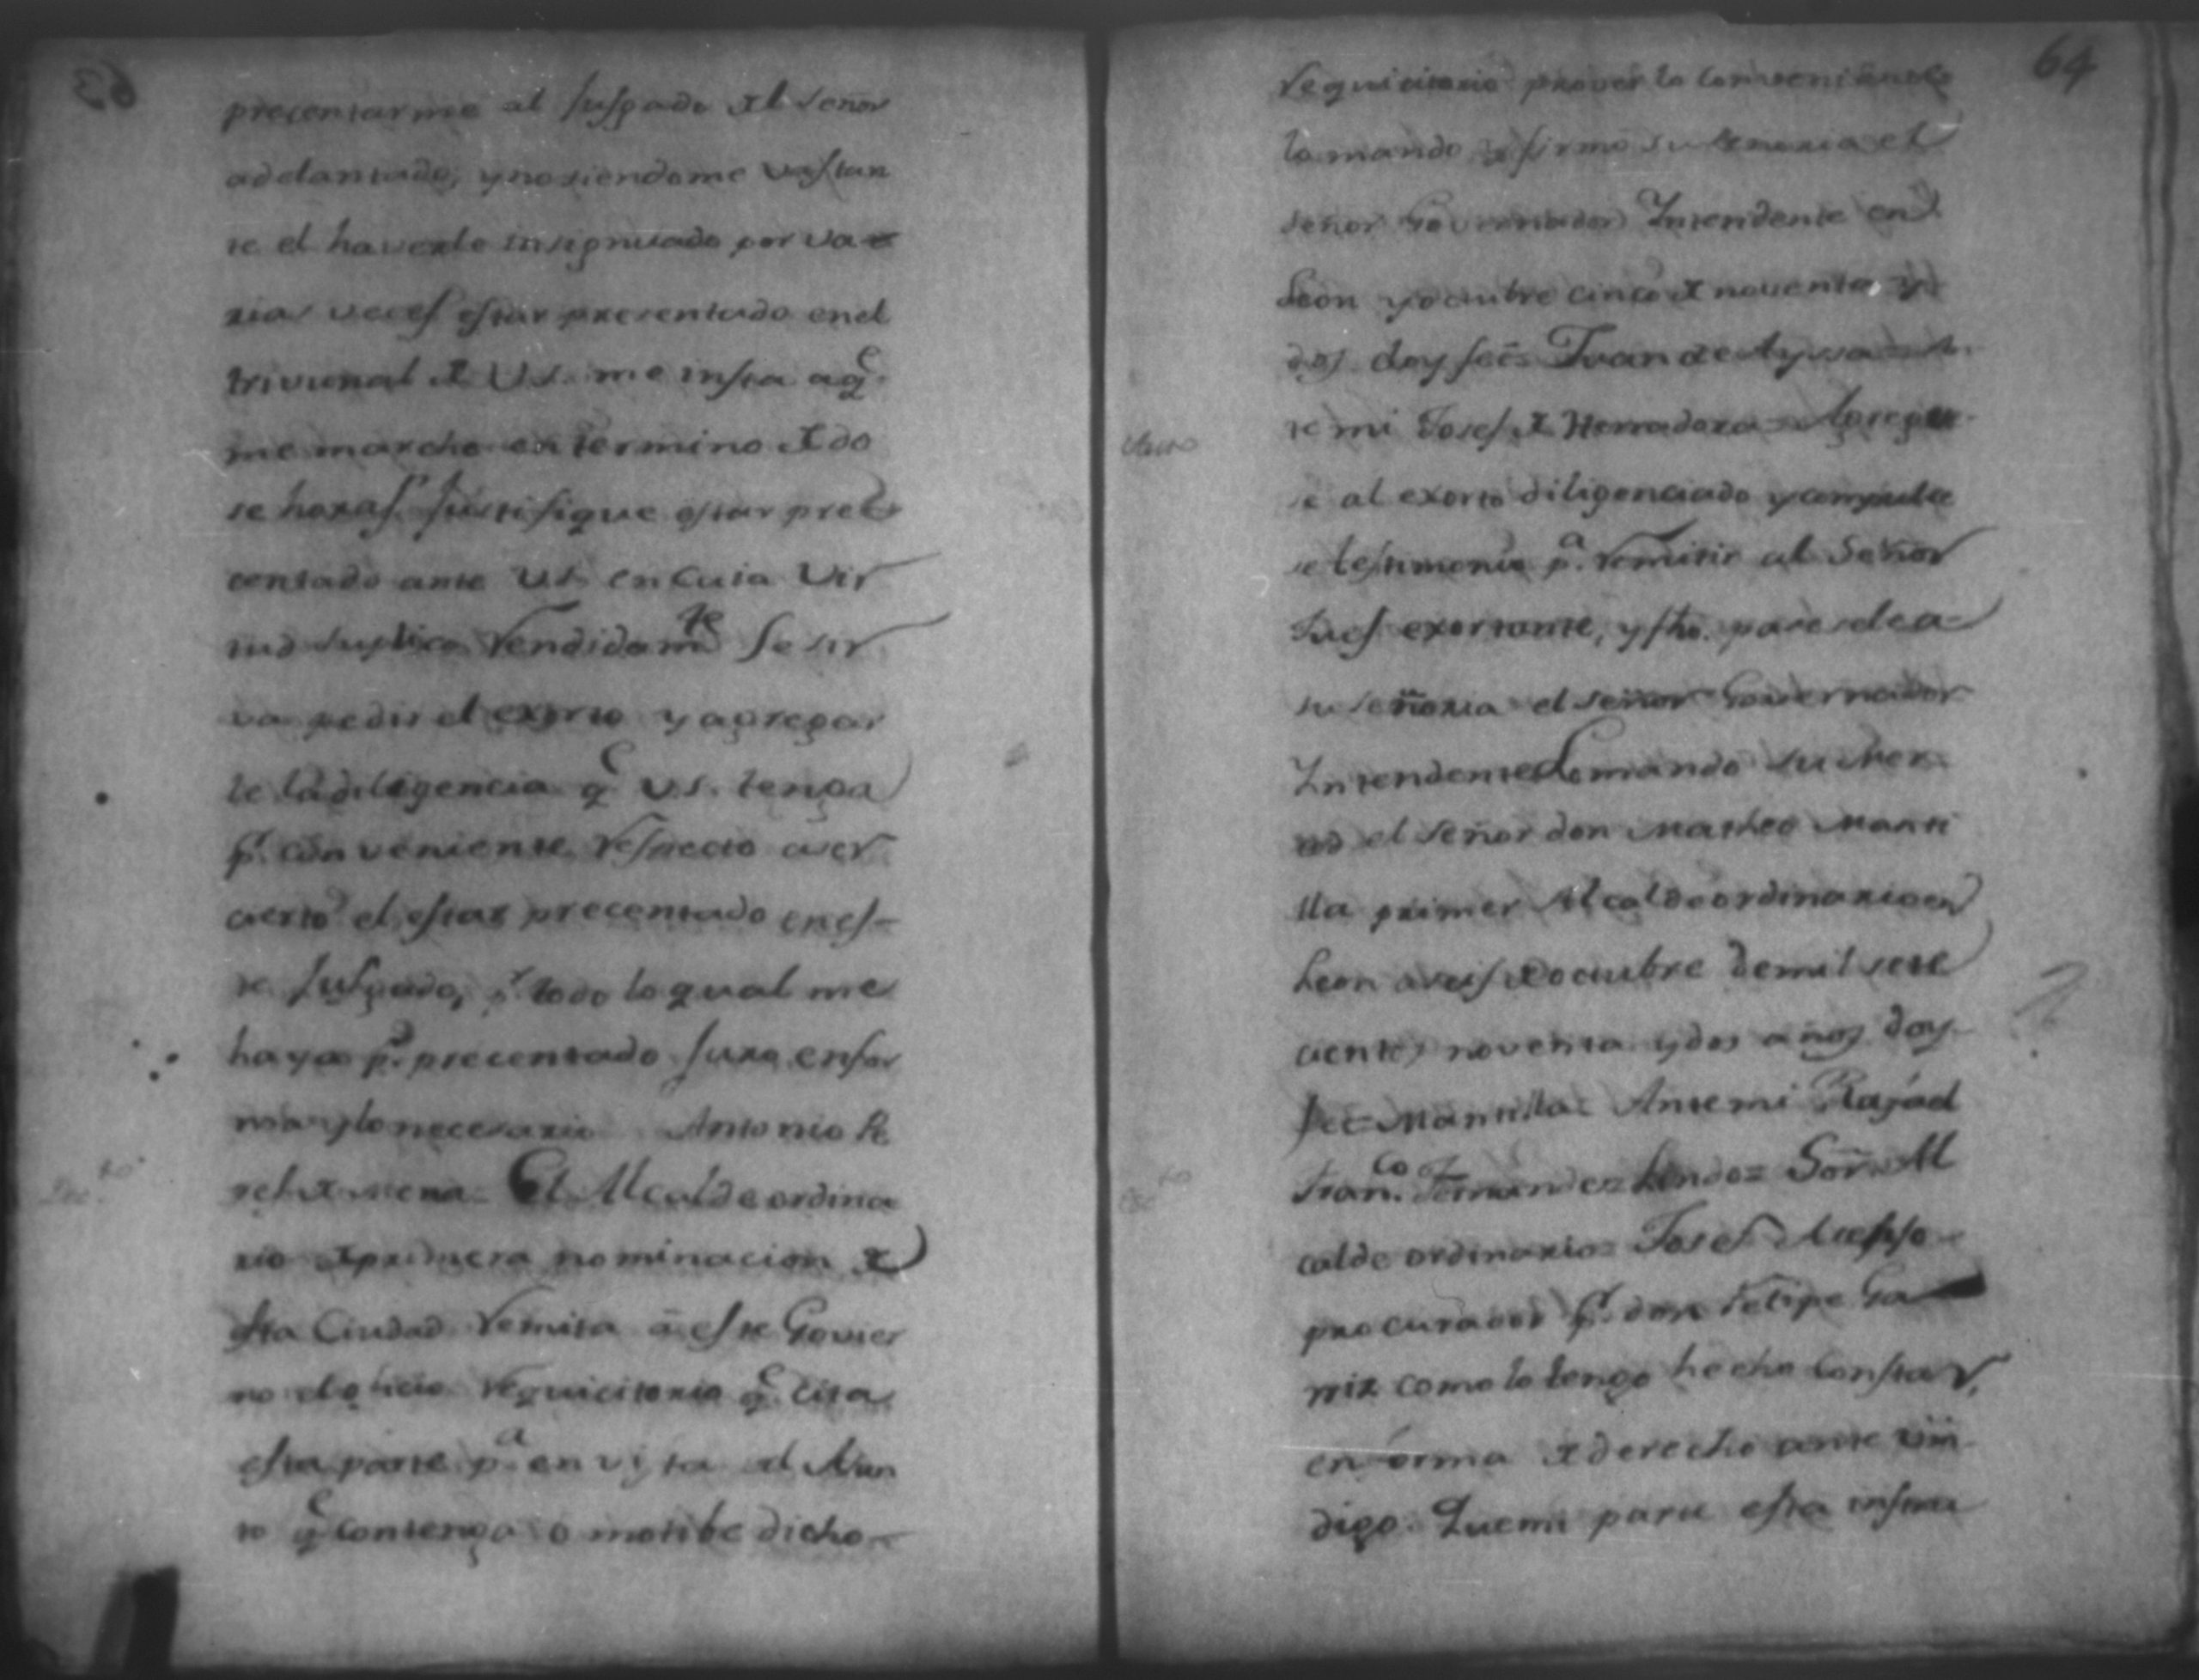 precentarme al Jusgado de el señor
adelantado, y no siendome vastan
te el haverle insignuado por va
rias veces estar presentado en el
trivunal de V.S. me insta a q.e
me marche en termino de do
se horas. Justifique estar pre
centado ante V.S. en cuia vir
tud suplico rendidam.te se sir
va pedir el exorto y agregar
le la diligencia q.e V.S. tenga
p.r conveniente respecto a ser
cierto el estar precentado en es-
te Jusgado, p.r todo lo qual me
haya p.r precentado Juro en for
ma y lo necesario Antonio Pe
res de Mena = El Alcalde ordina
rio de primera nominacion de
esta Ciudad remita a este Govier
no el oficio requicitorio q.e cita
esta parte p.a en vista del Asun
to q.e contenga o motibe dicho
64
requicitorio prover lo conveniente
lo mando y firmo su Señoria el
señor Governador Intendente en
Leon y octubre cinco de noventa y
dos doy fee = Juan de Ayssa = An
te mi Josef de Herradora = Agregue
Auto
se al exorto diligenciado y compulse
se testimonio p.a remitir al Señor
Jues exortante, y fho. pasesele a
su señoria el señor Governador
Intendente Lo mando su Mer
ed el señor don Matheo Manti
lla primer Alcalde ordinario en
Leon a seis de octubre de mil sete
cientos noventa y dos años doy
fee = Mantilla = Ante mi Rafael
Fran.co Fernandez Lindo = Señ.r Al
calde ordinario = Josef Crespso
procurador p.r don Felipe Ga
miz como lo tengo hecho constar,
en forma de derecho ante Vm
digo. Que mi parte esta instru